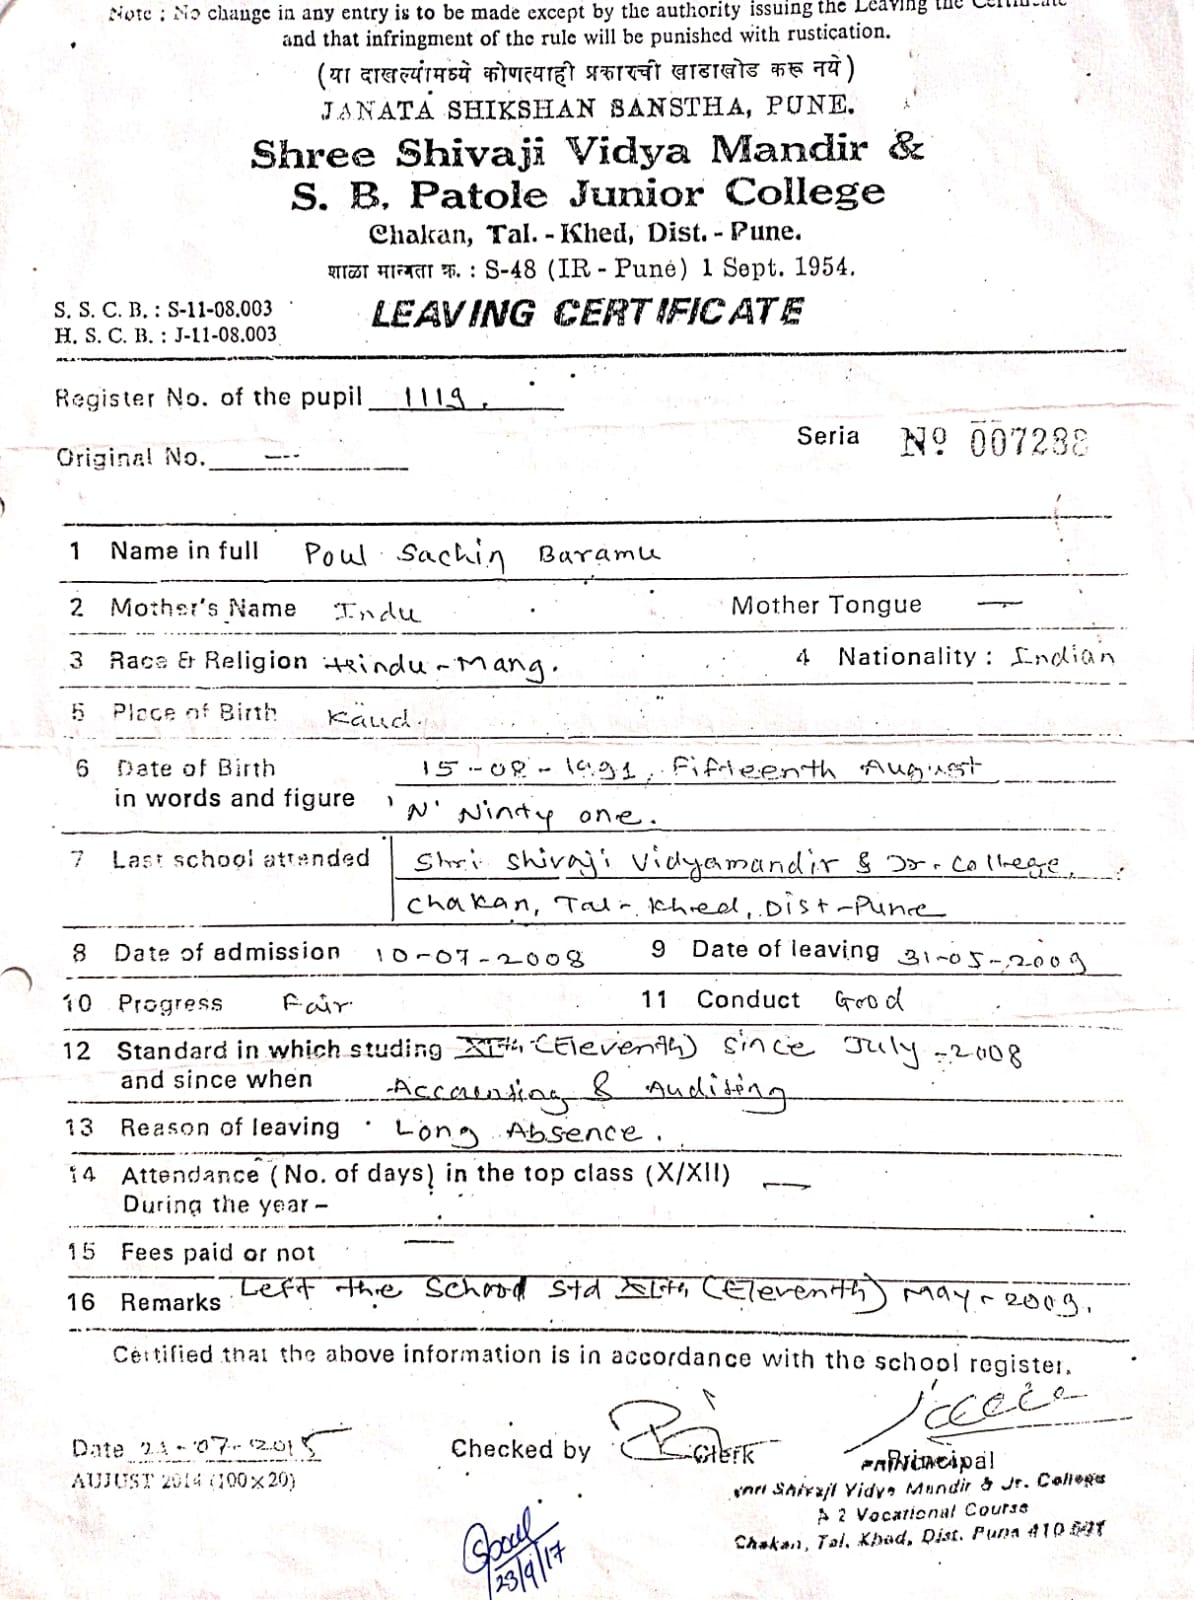 Note : No change in any entry is to be made except by the authority issuing the Leaving the Certificate
and that infringment of the rule will be punished with rustication.
(या दाखल्यांमध्ये कोणत्याही प्रकारची खाडाखोड करू नये)
JANATA SHIKSHAN SANSTHA, PUNE.
Shree Shivaji Vidya Mandir &
S. B. Patole Junior College
Chakan, Tal. - Khed, Dist. - Pune.
शाळा मान्यता क्र. : S-48 (IR - Pune) 1 Sept. 1954.
S. S. C. B. : S-11-08.003
LEAVING CERTIFICATE
H. S. C. B. : J-11-08.003
Register No. of the pupil 1119.
Seria Nº 007288
Original No. ---
1 Name in full Poul Sachin Baramu
2 Mother's Name Indu Mother Tongue —
3 Race & Religion Hindu - Mang. 4 Nationality : Indian
5 Place of Birth Kaud.
6 Date of Birth 15-08-1991, Fifteenth August
in words and figure N' Ninty one.
7 Last school attended Shri Shivaji Vidyamandir & Jr. College,
Chakan, Tal - Khed, Dist - Pune
8 Date of admission 10-07-2008 9 Date of leaving 31-05-2009
10 Progress Fair 11 Conduct Good
12 Standard in which studing XIth (Eleventh) since July - 2008
and since when Accounting & Auditing
13 Reason of leaving Long Absence.
14 Attendance (No. of days) in the top class (X/XII) —
During the year –
15 Fees paid or not —
16 Remarks Left the School Std XIth (Eleventh) May - 2009.
Certified that the above information is in accordance with the school register.
Date 21-07-2015 Checked by Clerk Principal
AUJUST 2014 (100×20)
Shri Shivaji Vidya Mandir & Jr. College
& 2 Vocational Course
Chakan, Tal. Khed, Dist. Pune 410 501
23/9/17